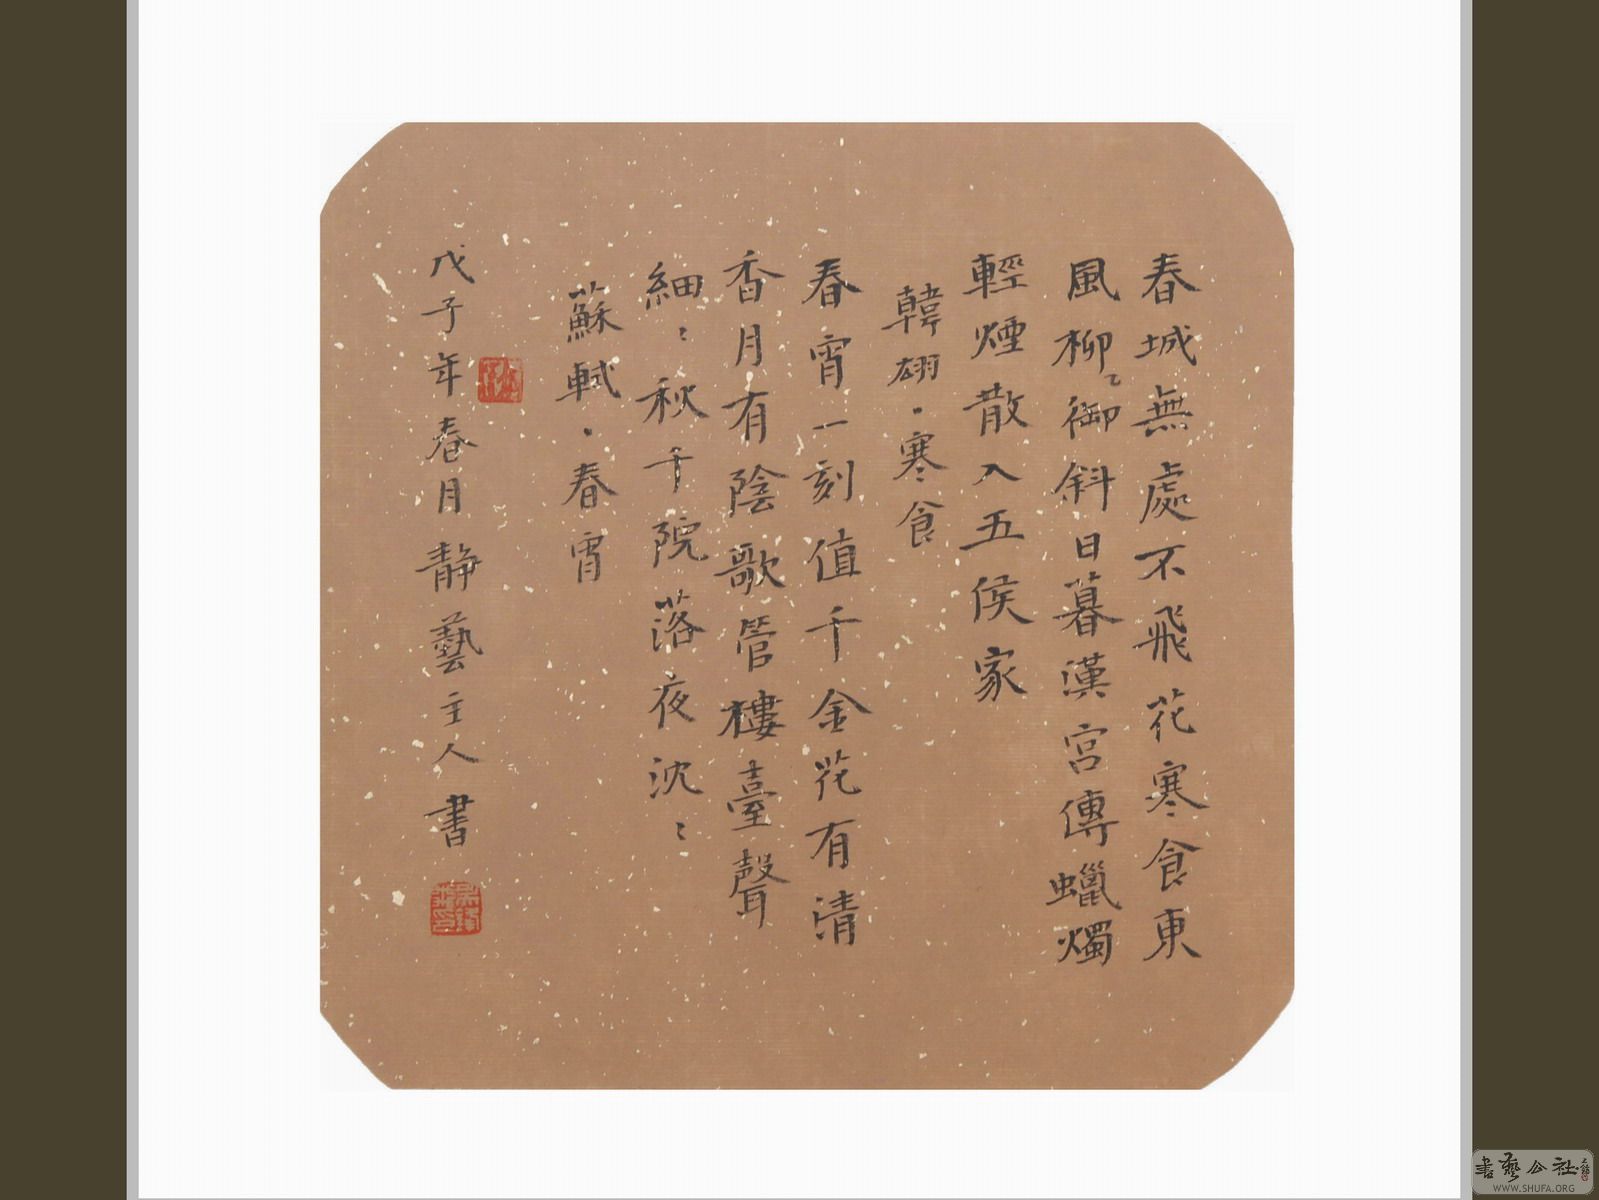 春城無處不飛花寒食東
風柳御斜日暮漢宮傳蠟燭
輕煙散入五侯家
韓翃·寒食
春宵一刻值千金花有清
香月有陰歌管樓臺聲
細〻秋千院落夜沈〻
蘇軾·春宵
戊子年春月静藝主人書
書藝公社
WWW.SHUFA.ORG